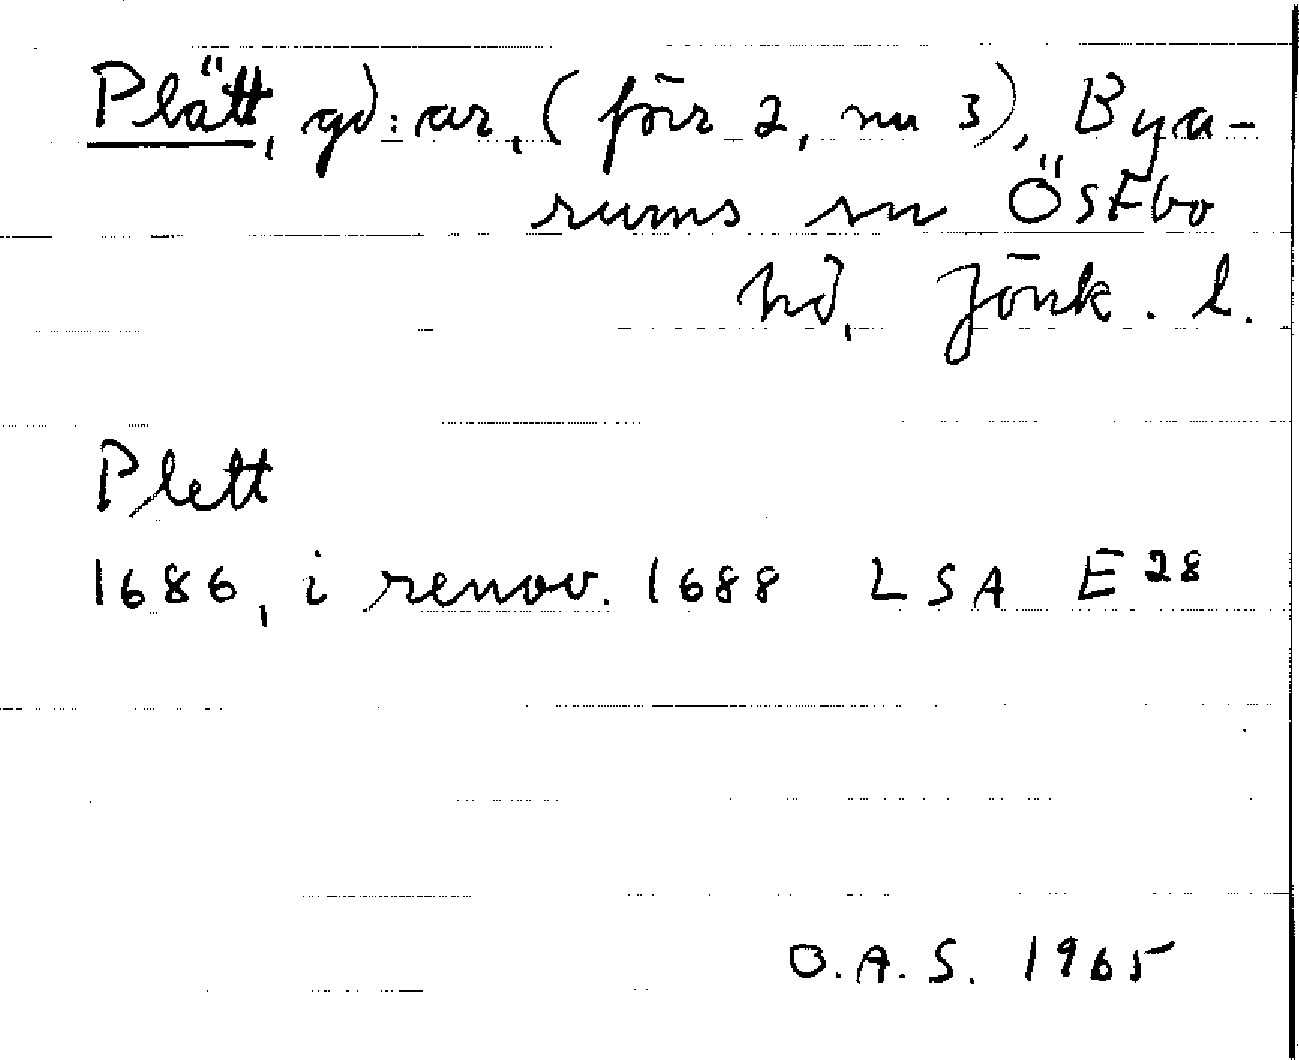 Plätt, gd:ar, (förr 2, nu 3), Bya-
rums sn Östbo
hd, Jönk. l.
Plett
1686, i renov. 1688 LSA E28
O.A.S. 1965